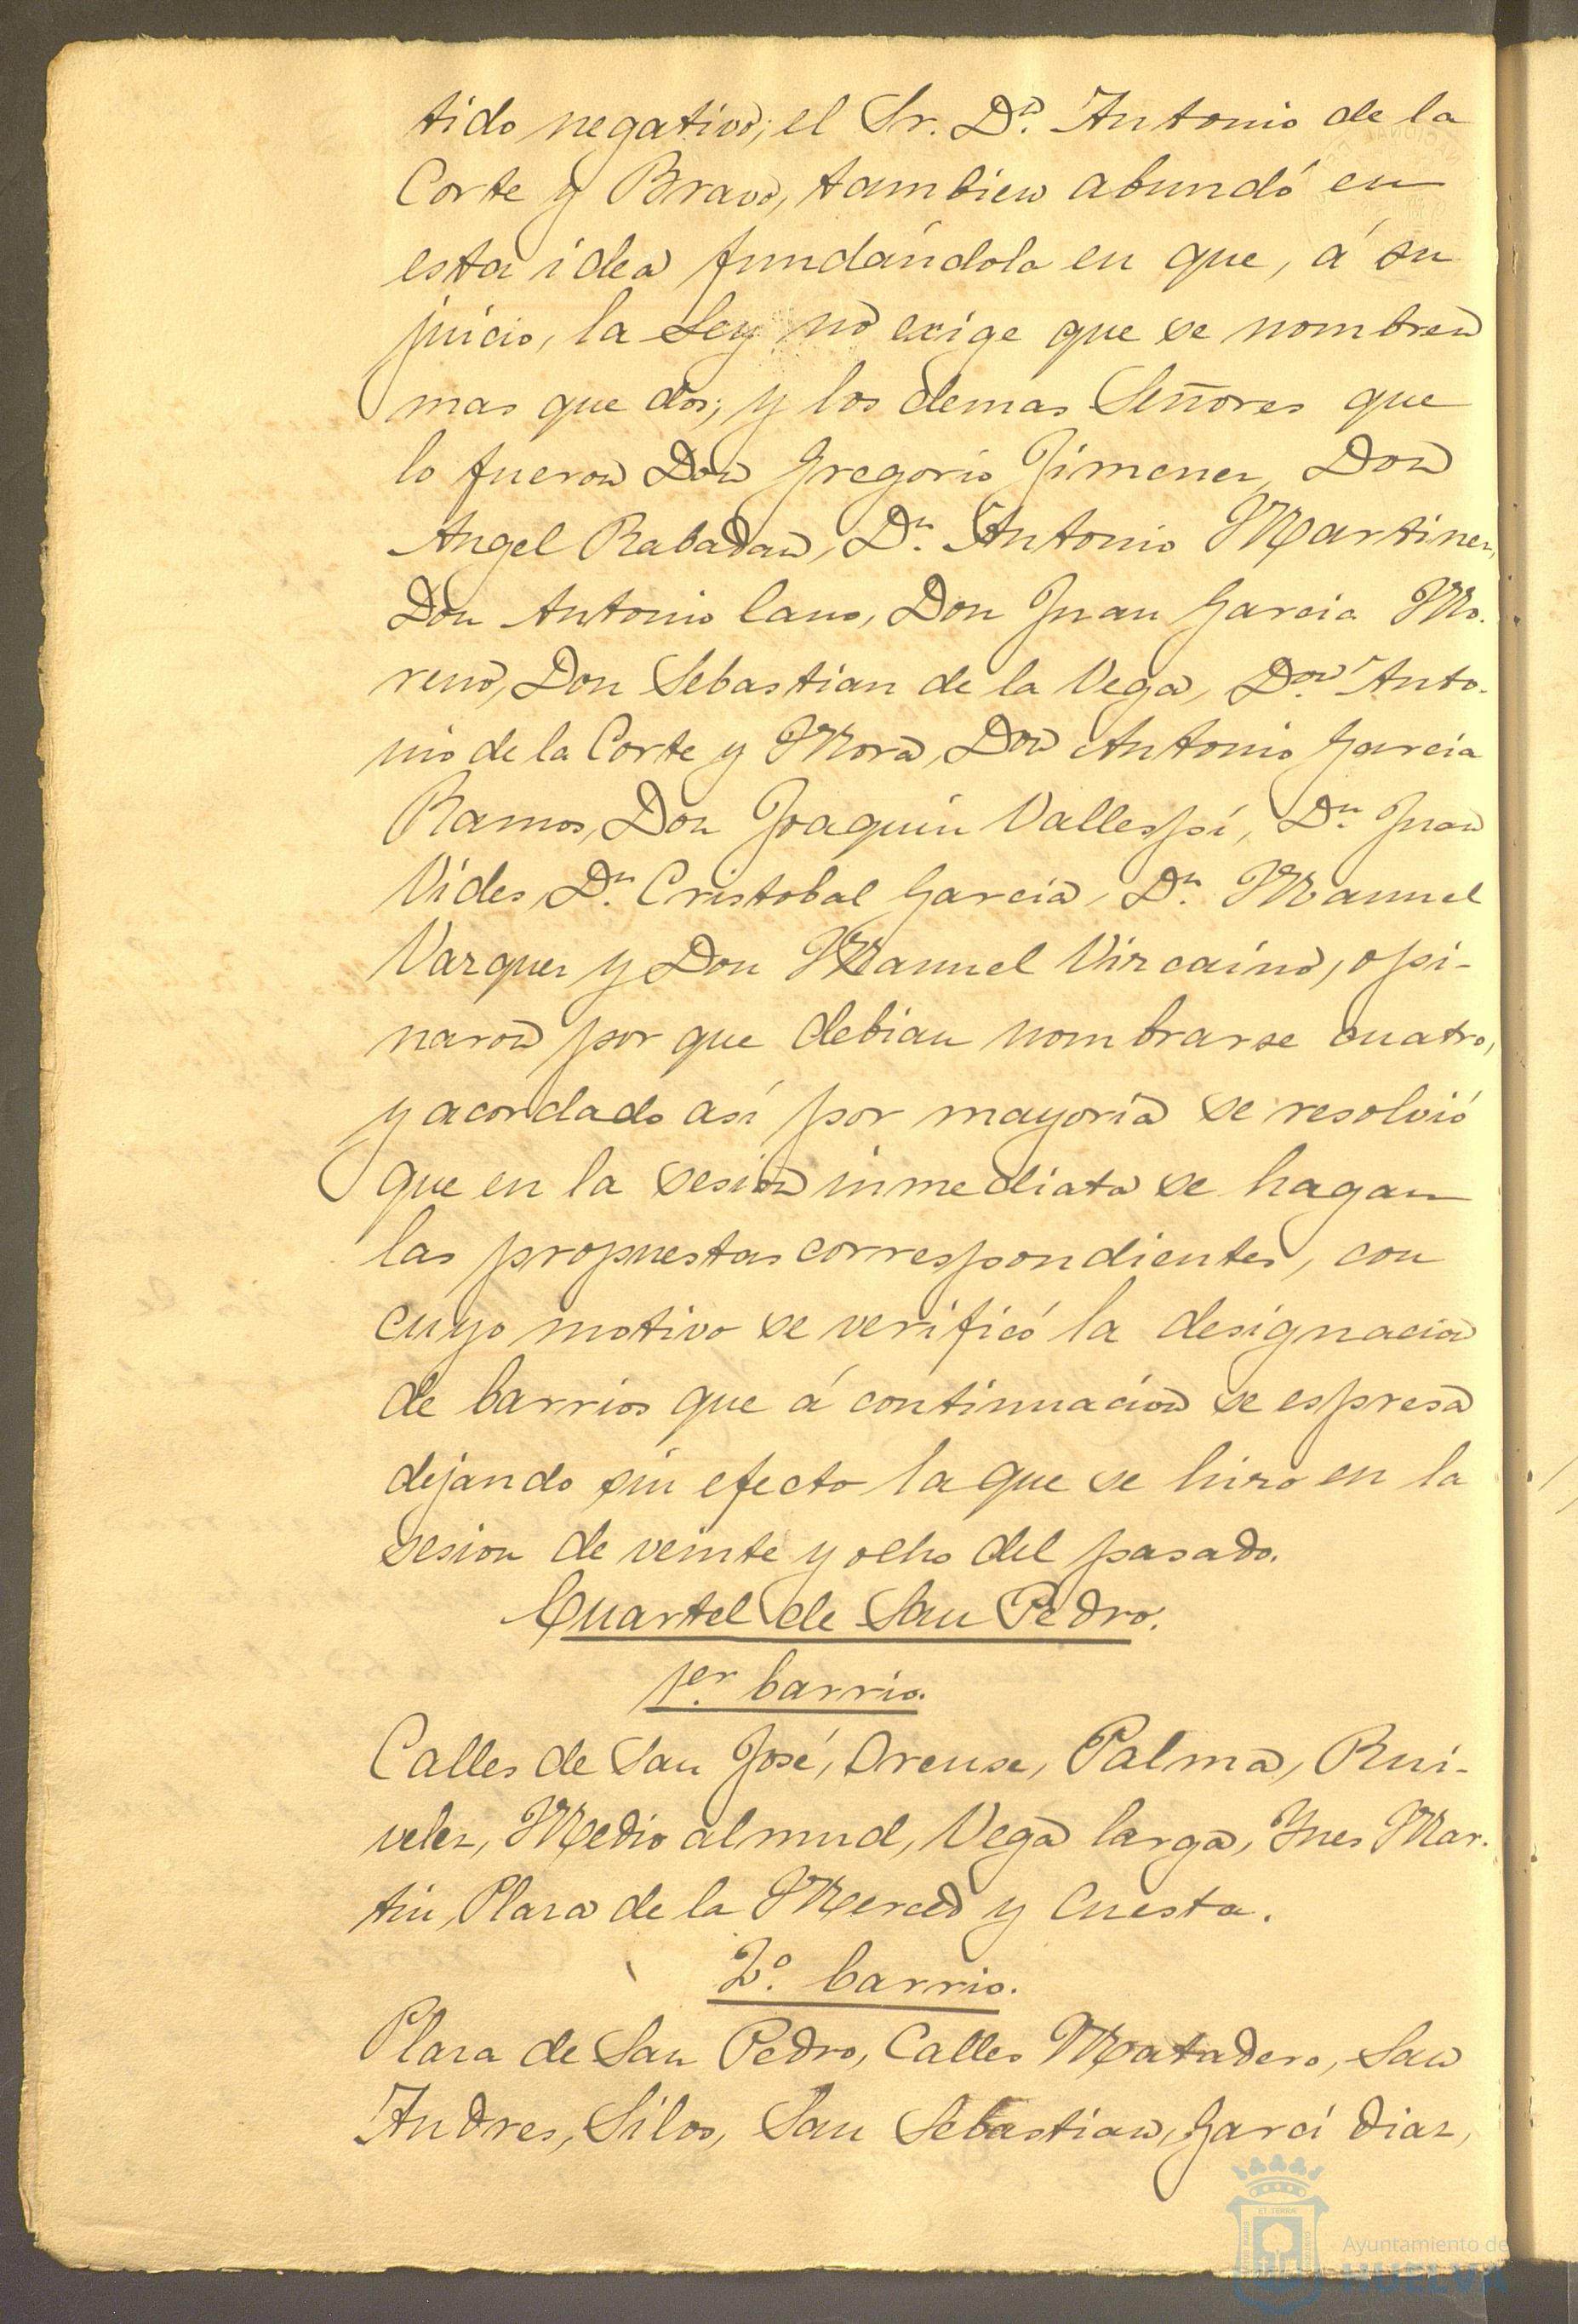 tido negativo; el Sr. Dn. Antonio de la
Corte y Bravo, tambien abundó en
esta idea fundándola en que, á su
juicio, la Ley no exige que se nombren
mas que dos; y los demas Señores que
lo fueron Don Gregorio Jimenez, Don
Angel Rabadan, Dn. Antonio Martinez,
Don Antonio Cano, Don Juan Garcia Mo-
reno, Don Sebastian de la Vega, Don Anto-
nio de la Corte y Mora, Don Antonio Garcia
Ramos, Don Joaquin Vallespí, Dn. Juan
Vides, Dn. Cristobal Garcia, Dn. Manuel
Vazquez y Don Manuel Vizcaino, opi-
naron por que debian nombrarse cuatro,
y acordado así por mayoría se resolvió
que en la sesion inmediata se hagan
las propuestas correspondientes, con
cuyo motivo se verificó la designacion
de barrios que á continuacion se espresa
dejando sin efecto la que se hizo en la
sesion de veinte y ocho del pasado.
Cuartel de San Pedro.
1er. barrio.
Calles de San José, Orense, Palma, Rui-
velez, Medio almud, Vega larga, Ynes Mar-
tin, Plaza de la Merced y Cuesta.
2º. barrio.
Plaza de San Pedro, Calles Matadero, San
Andres, Silos, San Sebastian, Garci diaz,
Ayuntamiento de
HUELVA